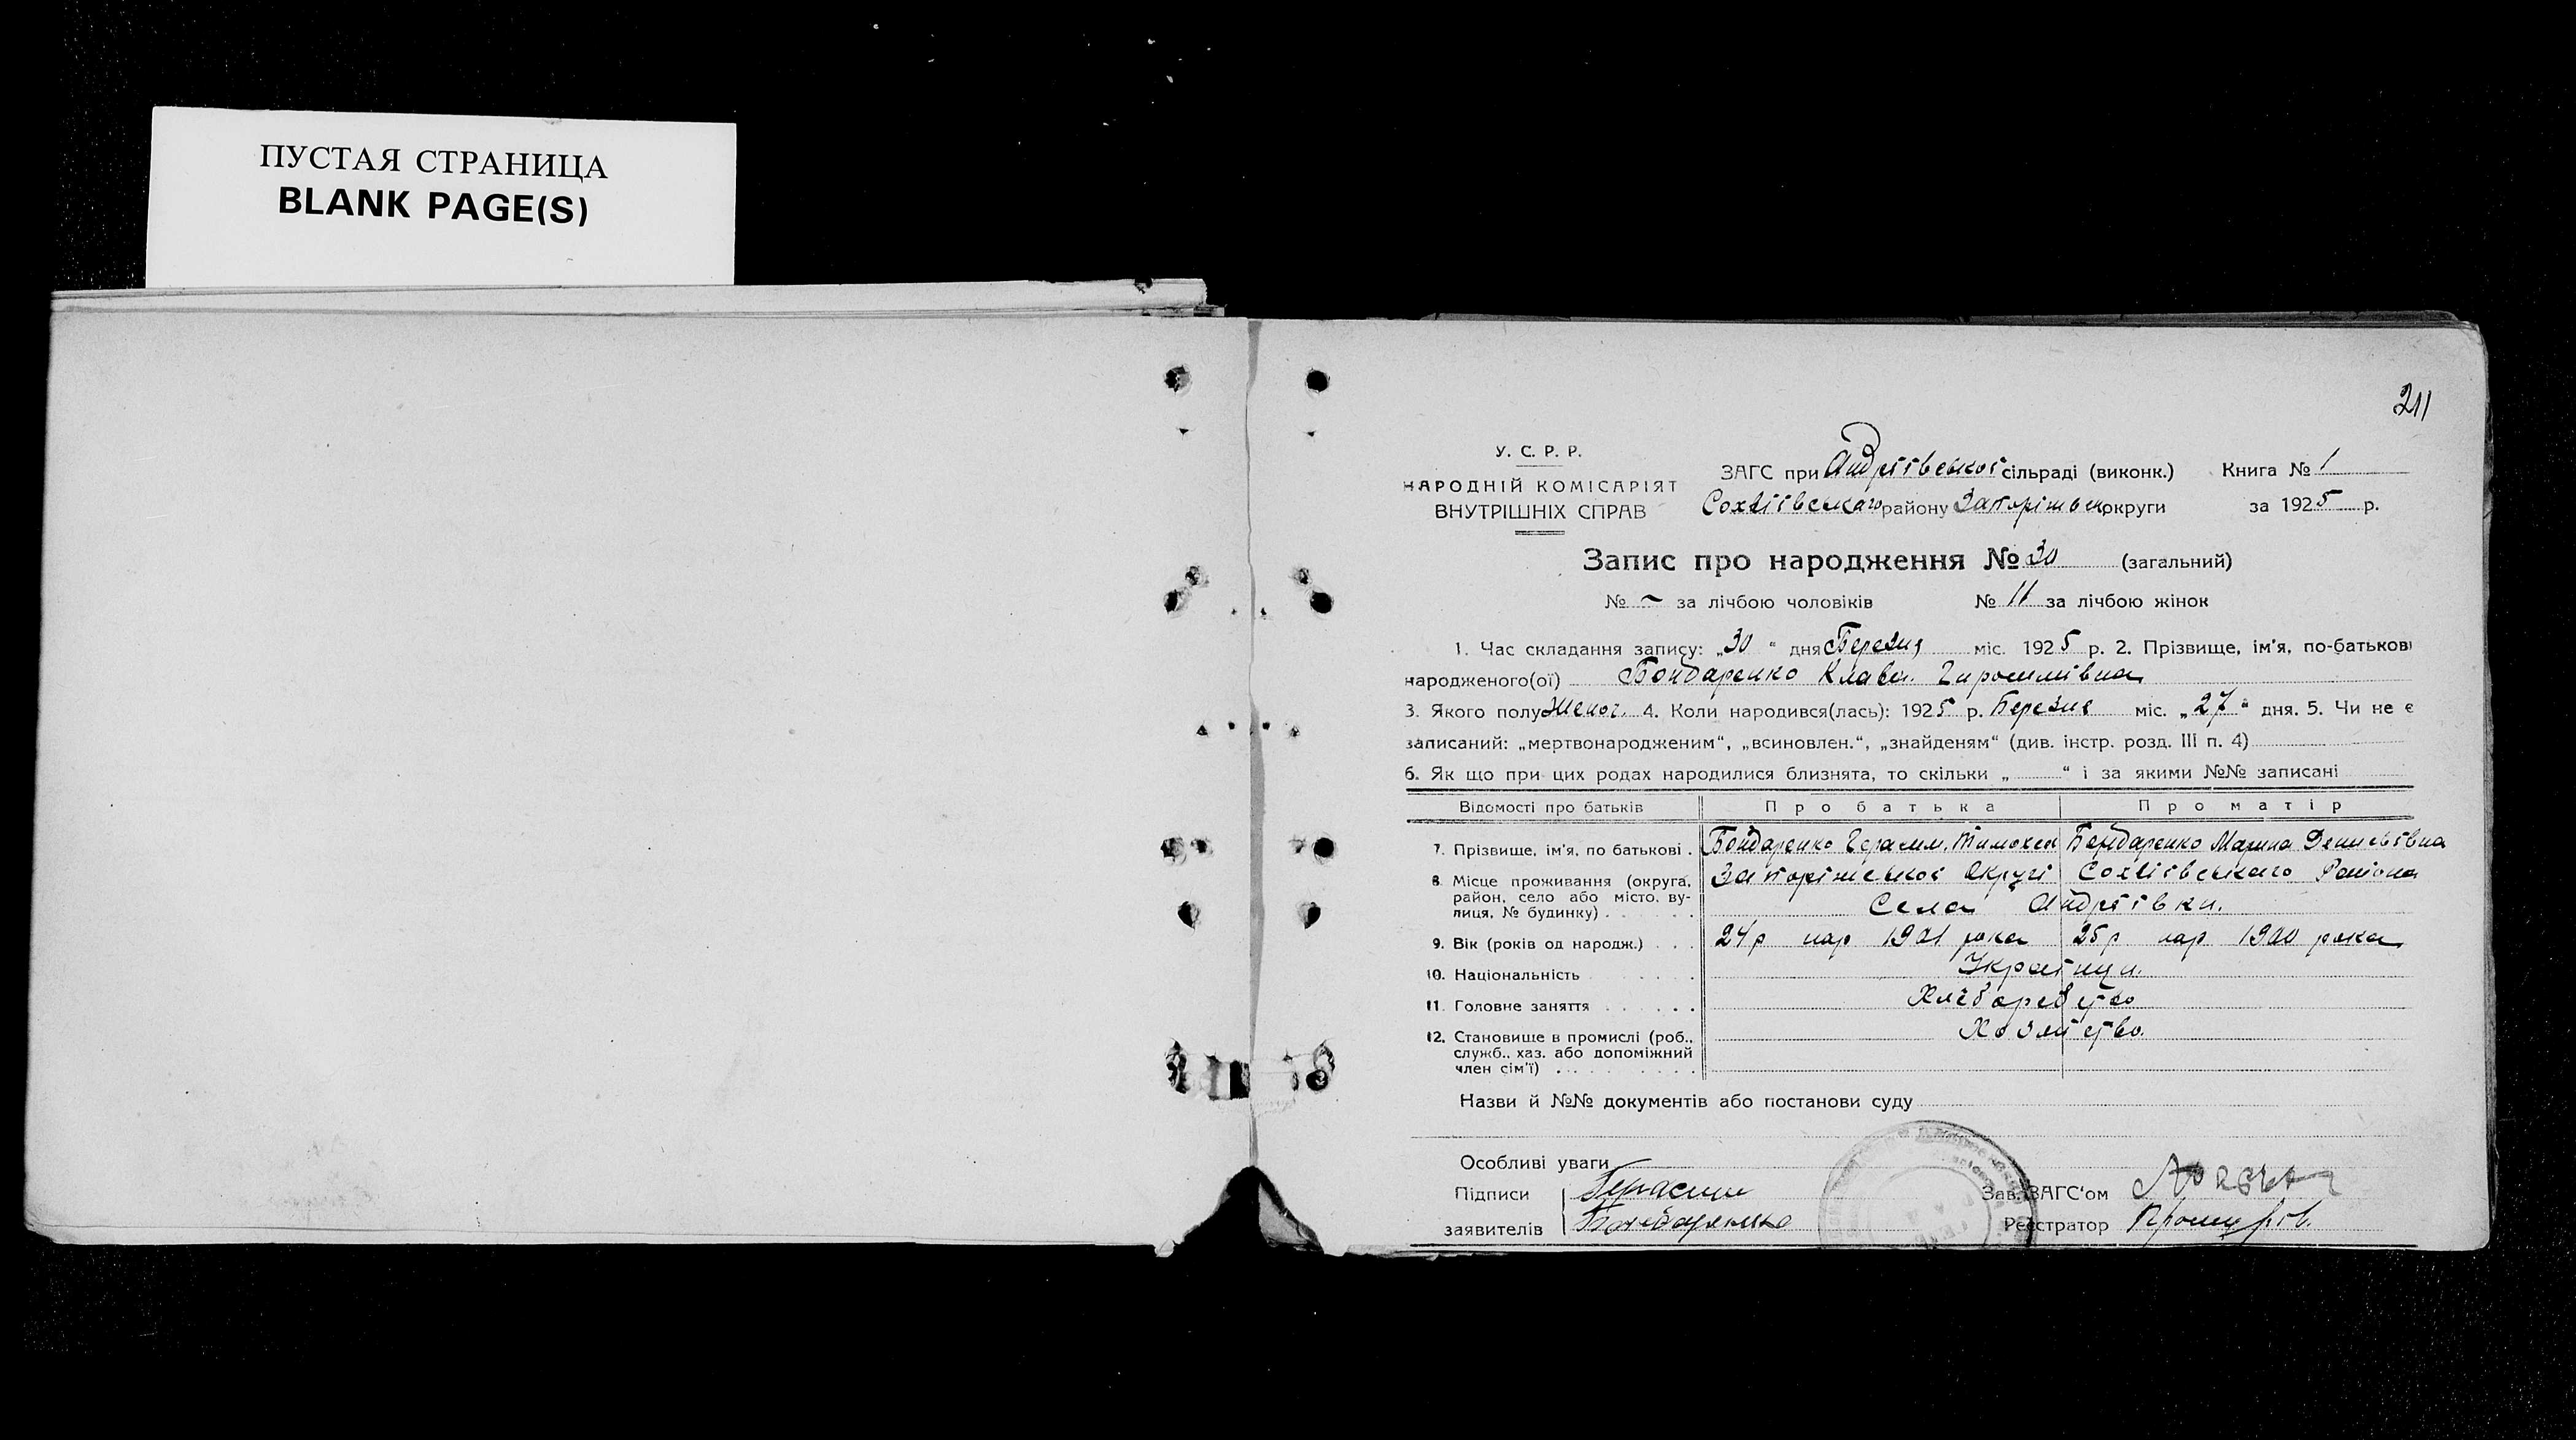 ПУСТАЯ СТРАНИЦА
BLANK PAGE(S)
211
У. С. Р. Р.
НАРОДНІЙ КОМІСАРІЯТ
ВНУТРІШНІХ СПРАВ
ЗАГС при Андріївської сільраді (виконк.) Книга № 1
Софіївського району Запоріжськ округи за 1925 р.
Запис про народження № 30 (загальний)
№ ~ за лічбою чоловіків № 11 за лічбою жінок
1. Час складання запису: „30“ дня Березня міс. 1925 р. 2. Прізвище, ім'я, по-батькові
народженого(ої) Бондаренко Клава
3. Якого полу Женог. 4. Коли народився(лась): 1925 р. Березня міс. „27“ дня. 5. Чи не є
записаний: „мертвонародженим“, „всиновлен.“, „знайденям“ (див. інстр. розд. III п. 4)
6. Як що при цих родах народилися близнята, то скільки „ “ і за якими №№ записані
Відомості про батьків Про батька Про матір
7. Прізвище, ім'я, по батькові . Бондаренко Герасим. Тимохеи Бондаренко Марина Денисьївна
8. Місце проживання (округа, район, село або місто, вулиця, № будинку) Запоріжської Округі Софіївського Раіона
Села Андріївки.
9. Вік (років од народж.) . . . 24 р нар 1901 рока 25 р нар 1900 рока
10. Національність Українци.
11. Головне заняття Хліборобство
12. Становище в промислі (роб., служб., хаз. або допоміжний член сім'ї) Хозяйство.
Назви й №№ документів або постанови суду
Особливі уваги
Підписи Герасим Зав. ЗАГС'ом
заявителів Бондаренко Реєстратор